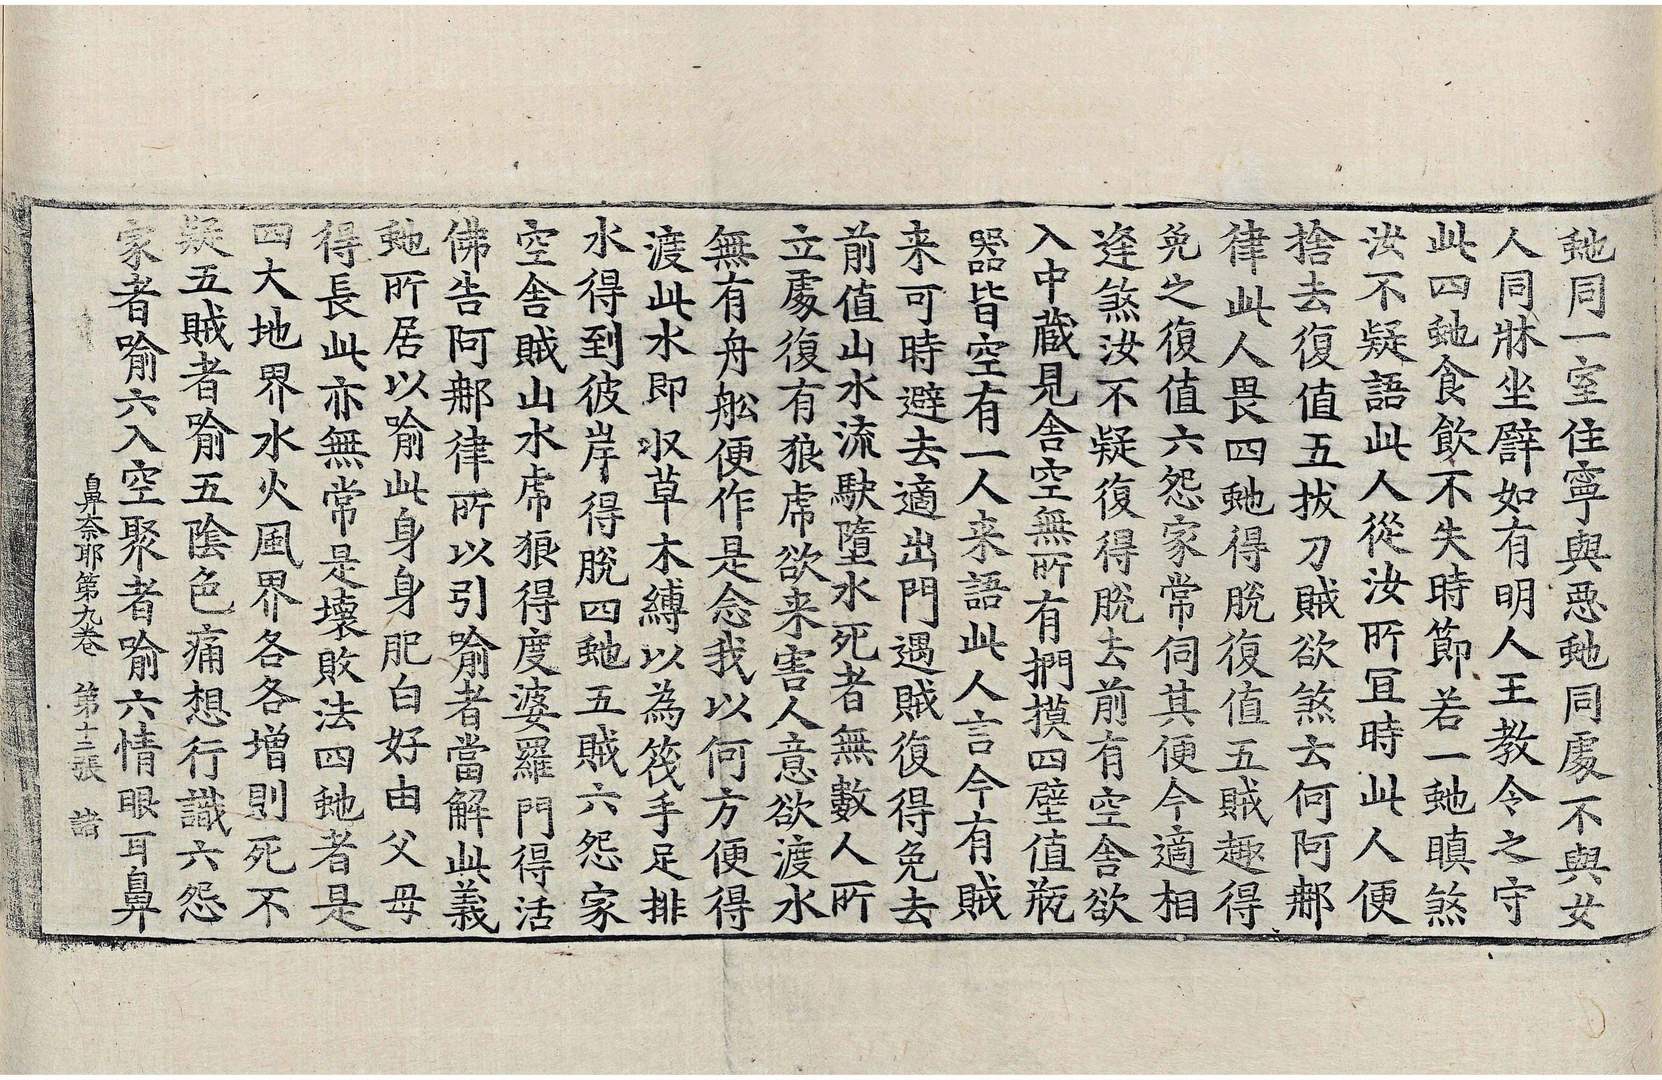 虵同一室住寧與惡虵同處不與女
人同牀坐譬如有明人王教令之守
此四虵食飲不失時節若一虵瞋煞
汝不疑語此人從汝所宜時此人便
捨去復值五拔刀賊欲煞去何阿那
律此人畏四虵得脫復值五賊趣得
免之復值六怨家常伺其便今適相
逢煞汝不疑復得脫去前有空舍欲
入中藏見舍空無所有捫摸四壁值瓶
器皆空有一人来語此人言今有賊
来可時避去適出門遇賊復得免去
前值山水流駛墮水死者無數人所
立處復有狼虎欲来害人意欲渡水
無有舟舩便作是念我以何方便得
渡此水即収草木縛以為筏手足排
水得到彼岸得脫四虵五賊六怨家
空舍賊山水虎狼得度婆羅門得活
佛告阿那律所以引喻者當解此義
虵所居以喻此身身肥白好由父母
得長此亦無常是壞敗法四虵者是
四大地界水火風界各各增則死不
疑五賊者喻五陰色痛想行識六怨
家者喻六入空聚者喻六情眼耳鼻
鼻奈耶第九卷 第十二張 諸